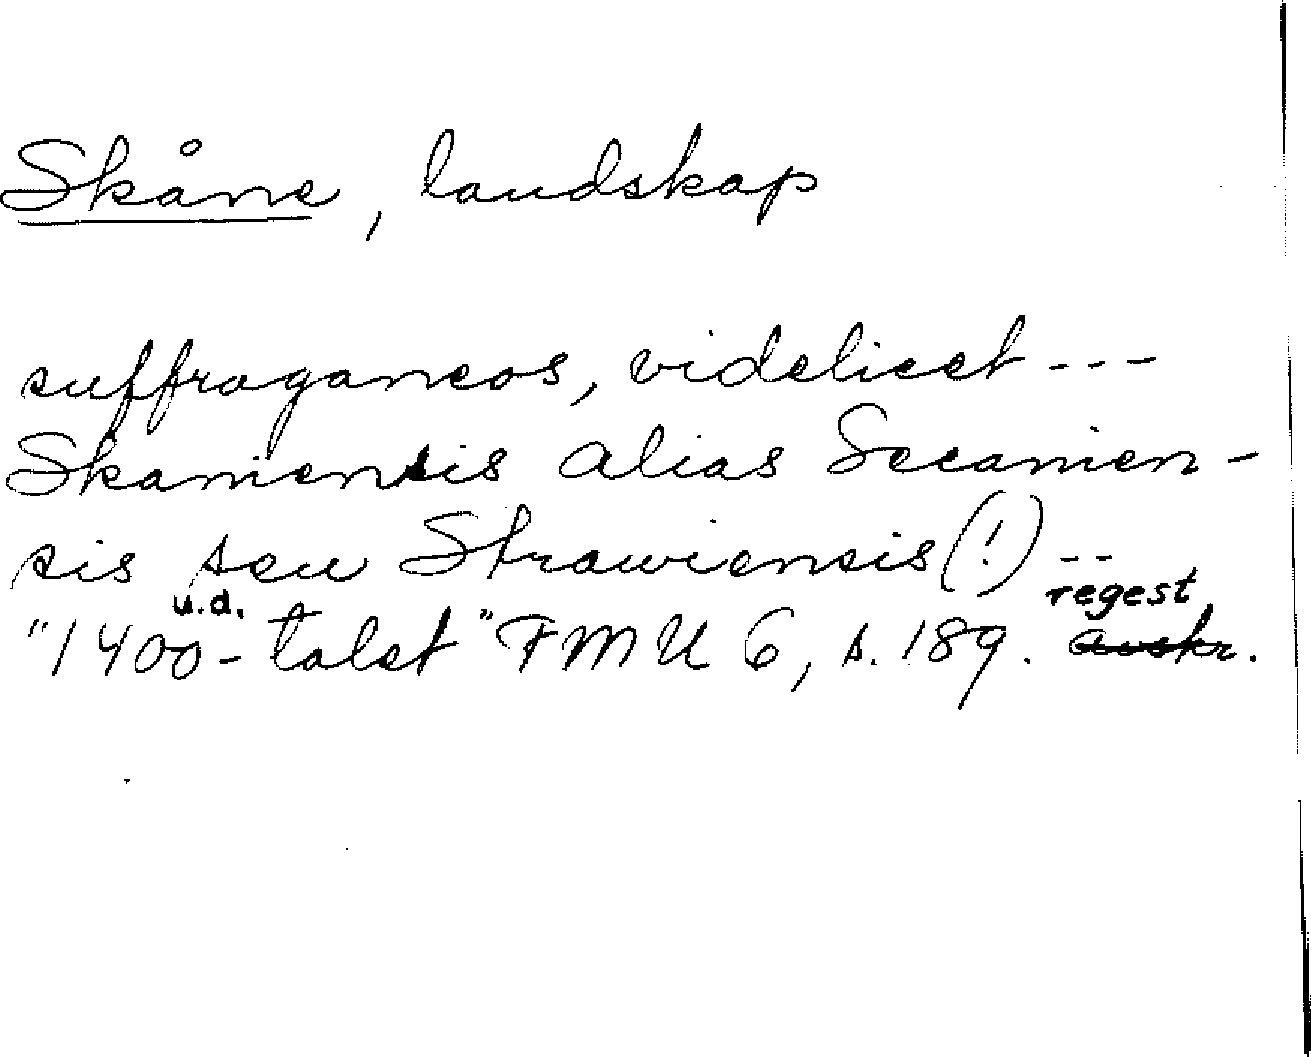 Skåne, landskap
suffraganeos, videlicet ---
Skaniensis alias Secanien-
sis seu Strawiensis (!) --
u.d. regest
"1400-talet" FMU 6, s. 189. avskr.